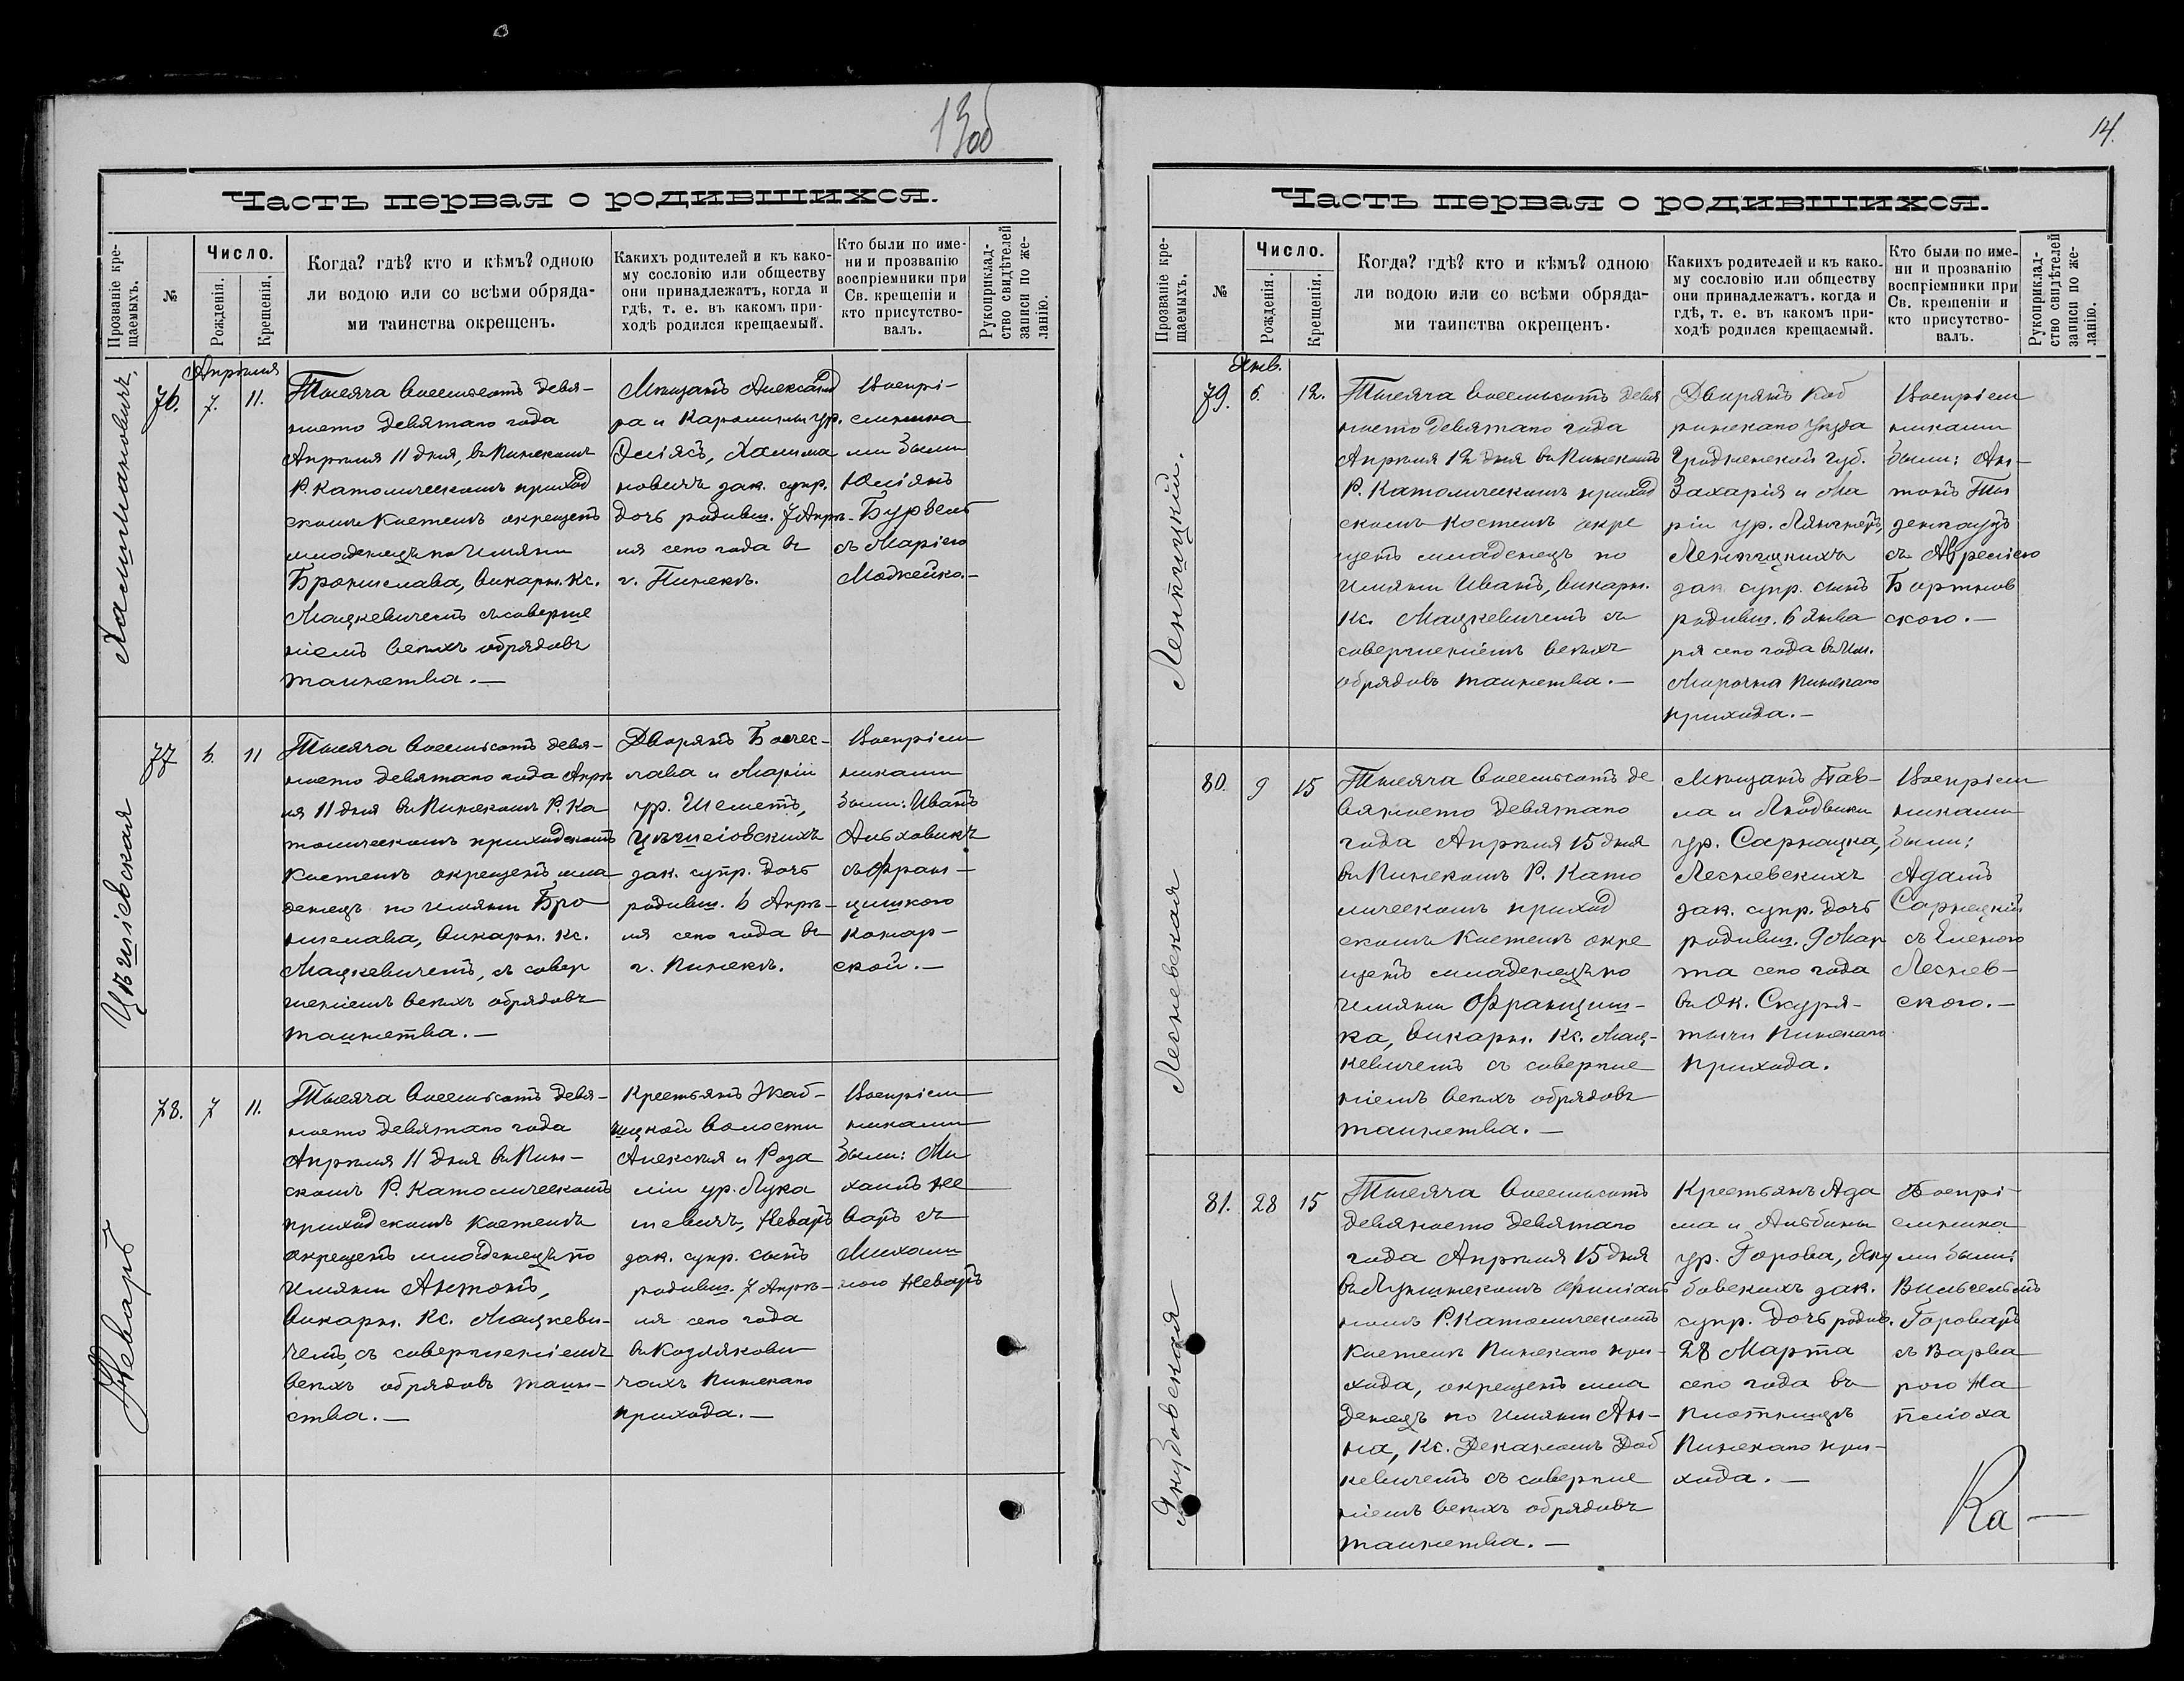 13об
Часть первая о родившихся.
Прозваніе кре-
щаемыхъ.
№
Число.
Рожденія.
Крещенія.
Когда? гдѣ? кто и кѣмъ? одною
ли водою или со всѣми обряда-
ми таинства окрещенъ.
Какихъ родителей и къ како-
му сословію или обществу
они принадлежатъ, когда и
гдѣ, т. е. въ какомъ при-
ходѣ родился крещаемый.
Кто были по име-
ни и прозванію
воспріемники при
Св. крещеніи и
кто присутство-
валъ.
Рукоприклад-
ство свидѣтелей
записи по же-
ланію.
Апрѣля
76.
7.
11.
Тысяча восемьсотъ девя-
носто девятаго года
Апрѣля 11 дня, въ Пинскомъ
Р. Католическомъ приход
скомъ Костелѣ окрещенъ
младенецъ по имяни
Бронислава, викарн. Кс.
Мацкевичемъ съ соверше
ніемъ всѣхъ обрядовъ
таинства.—
Мѣщанъ Александ
ра и Каролины ур.
новичъ зак. супр.
дочь родивш. 7 Апрѣ-
ля сего года въ
г. Пинскѣ.
Воспрі-
емника
ми были
Юліянъ
Бурвель
съ Маріею
Моджейко.—
Цѣчшіевская
77
6.
11
Тысяча восемьсотъ девя-
носто девятаго года Апрѣ
ля 11 дня въ Пинскомъ Р. Ка
толическомъ приходскомъ
Костелѣ окрещенъ мла
денецъ по имяни Бро
нислава, викарн. Кс.
Мацкевичемъ, съ совер
шеніемъ всѣхъ обрядовъ
таинства.—
Дворянъ Болес-
лава и Маріи
ур. Шеметъ,
зак. супр. дочь
родивш. 6 Апрѣ-
ля сего года въ
г. Пинскѣ.
Воспріем
никами
были: Иванъ
Альховикъ
съ Фран-
цишкою
Комар-
ской.—
Жеваръ
78.
7
11.
Тысяча восемьсотъ девя-
носто девятаго года
Апрѣля 11 дня въ Пин-
скомъ Р. Католическомъ
приходскомъ Костелѣ
окрещенъ младенецъ по
имяни Антонъ,
викарн. Кс. Мацкеви-
чемъ, съ совершеніемъ
всѣхъ обрядовъ таин-
ства.—
Крестьянъ Жаб-
чицкой волости
Алексѣя и Роза
ліи ур. Лука
шевичъ, Жеваръ
зак. супр. сынъ
родивш. 7 Апрѣ-
ля сего года
въ Козлякови
чахъ Пинскаго
прихода.—
Воспріем
никами
были: Ми
хаилъ Же
варъ съ
Михали
ною Жеваръ
14.
Часть первая о родившихся.
Прозваніе кре-
щаемыхъ.
№
Число.
Рожденія.
Крещенія.
Когда? гдѣ? кто и кѣмъ? одною
ли водою или со всѣми обряда-
ми таинства окрещенъ.
Какихъ родителей и къ како-
му сословію или обществу
они принадлежатъ. когда и
гдѣ, т. е. въ какомъ при-
ходѣ родился крещаемый.
Кто были по име-
ни и прозванію
воспріемники при
Св. крещеніи и
кто присутство-
валъ.
Рукоприклад-
ство свидѣтелей
записи по же-
ланію.
Янв.
79.
6.
12.
Тысяча восемьсотъ девя
носто девятаго года
Апрѣля 12 дня въ Пинскомъ
Р. Католическомъ приход
скомъ Костелѣ окре
щенъ младенецъ по
имяни Иванъ, викарн.
Кс. Мацкевичемъ съ
совершеніемъ всѣхъ
обрядовъ таинства.—
Дворянъ Коб
ринскаго уѣзда
Гродненской губ.
Захарія и Ма
ріи ур.
зак. супр. сынъ
родивш. 6 Янва
ря сего года въ Им.
Мирочна Пинскаго
прихода.—
Воспріем
никами
были: Ан-
тонъ
съ Авреліею
Бортнов
скою.—
Лесневская
80.
9
15
Тысяча восемьсотъ де
вяносто девятаго
года Апрѣля 15 дня
въ Пинскомъ Р. Като
лическомъ приход
скомъ Костелѣ окре
щенъ младенецъ по
имяни Францишка-
ка, викарн. Кс. Мац-
кевичемъ съ соверше
ніемъ всѣхъ обрядовъ
таинства.—
Мѣщанъ Пав-
ла и Людвики
ур. Сарнацка,
Лесневскихъ
зак. супр. дочь
родивш. 9 Мар
та сего года
въ Ок. Скуря-
тычи Пинскаго
прихода.
Воспріем
никами
были:
Адамъ
Сарнецкій
съ Еленою
Леснев-
скою.—
Якубовская
81.
28
15
Тысяча восемьсотъ
девяносто девятаго
года Апрѣля 15 дня
въ Лунинскомъ филіаль
номъ Р. Католическомъ
Костелѣ Пинскаго при-
хода, окрещенъ мла
денецъ по имяни Ан-
на, Кс. Деканомъ Дой
кевичемъ съ соверше
ніемъ всѣхъ обрядовъ
таинства.—
Крестьянъ Ада
ма и Альбины
ур. Горова, Яку
бовскихъ зак.
супр. дочь родив.
28 Марта
сего года въ
Плотницѣ
Пинскаго при-
хода.—
Воспрі-
емника
ми были:
Вильгельмъ
Горовацъ
съ Варва
рою
Ка—